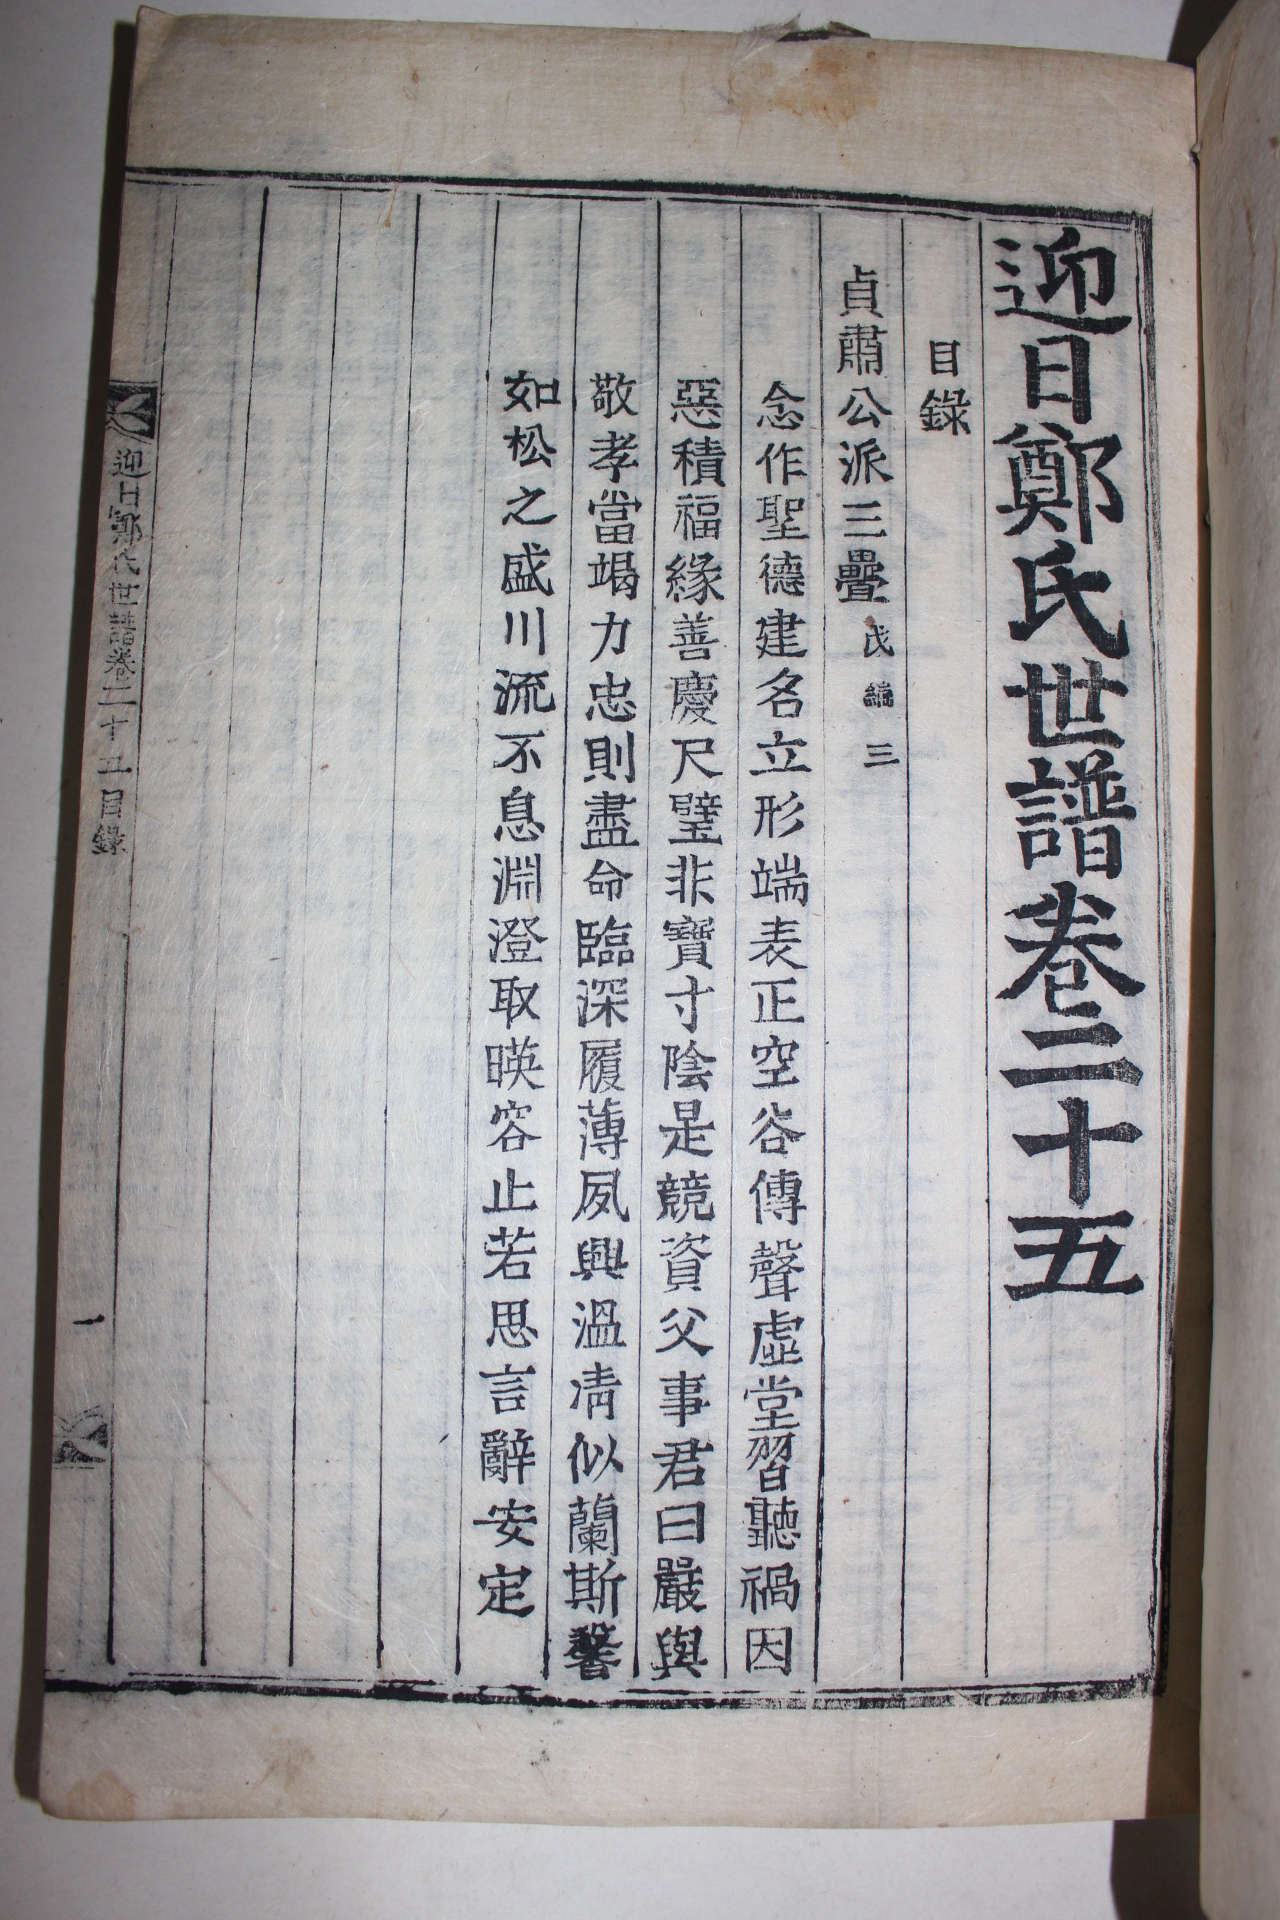 迎日鄭氏世譜卷二十五
目錄
貞肅公派三疊 戊編三
念作聖德建名立形端表正空谷傳聲虛堂習聽禍因
惡積福緣善慶尺璧非寶寸陰是競資父事君曰嚴與
敬孝當竭力忠則盡命臨深履薄夙興溫凊似蘭斯馨
如松之盛川流不息淵澄取暎容止若思言辭安定
迎日鄭氏世譜卷二十五目錄 一